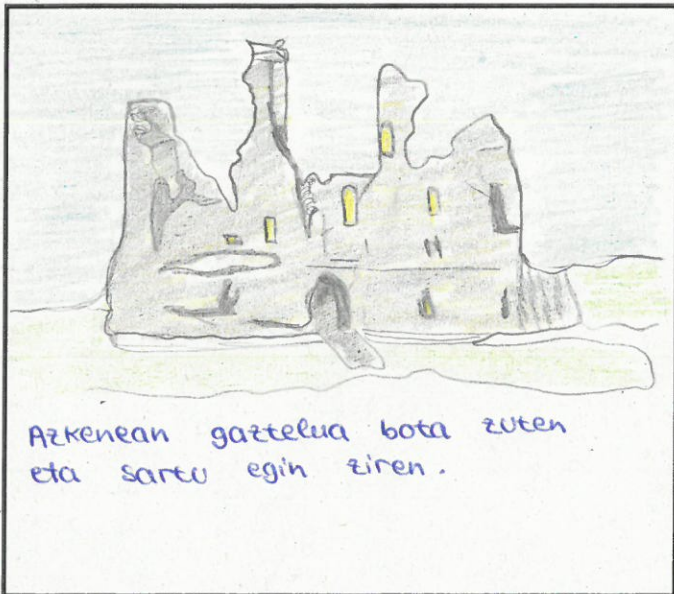 Azkenean gaztelua bota zuten
eta sartu egin ziren.